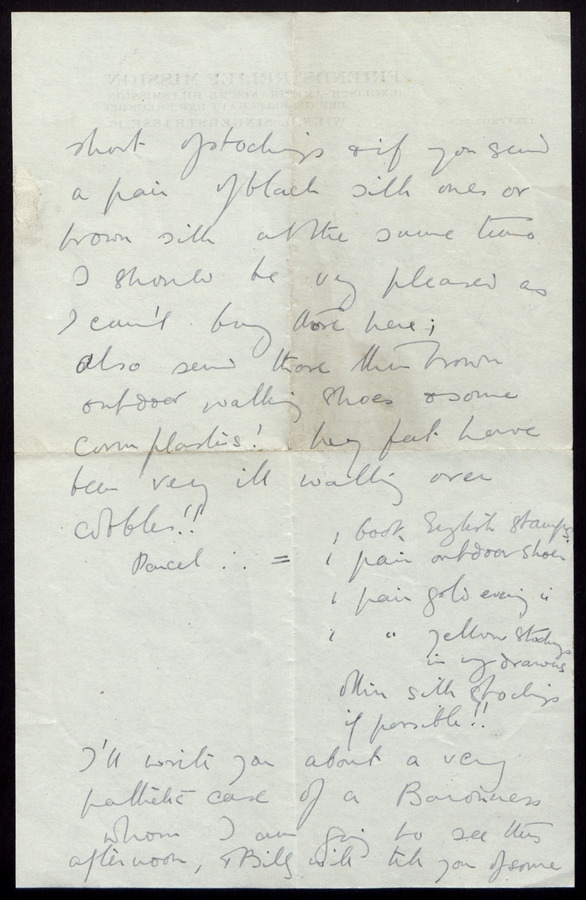 short of stockings & if you send
a pair of black silk ones or
brown silk at the same time
I should be very pleased as
I can't buy those here;
also send those thin brown
outdoor walking shoes & some
corn plasters! My feet have
been very ill walking over
cobbles!!
Parcel ∴ =
1 book English stamps
1 pair outdoor shoes
1 pair gold evening "
1 " yellow stockings
in my drawers
thin silk stockings
if possible!!
I'll write you about a very
pathetic case of a Baroness
whom I am going to see this
afternoon, & Billy will tell you of some